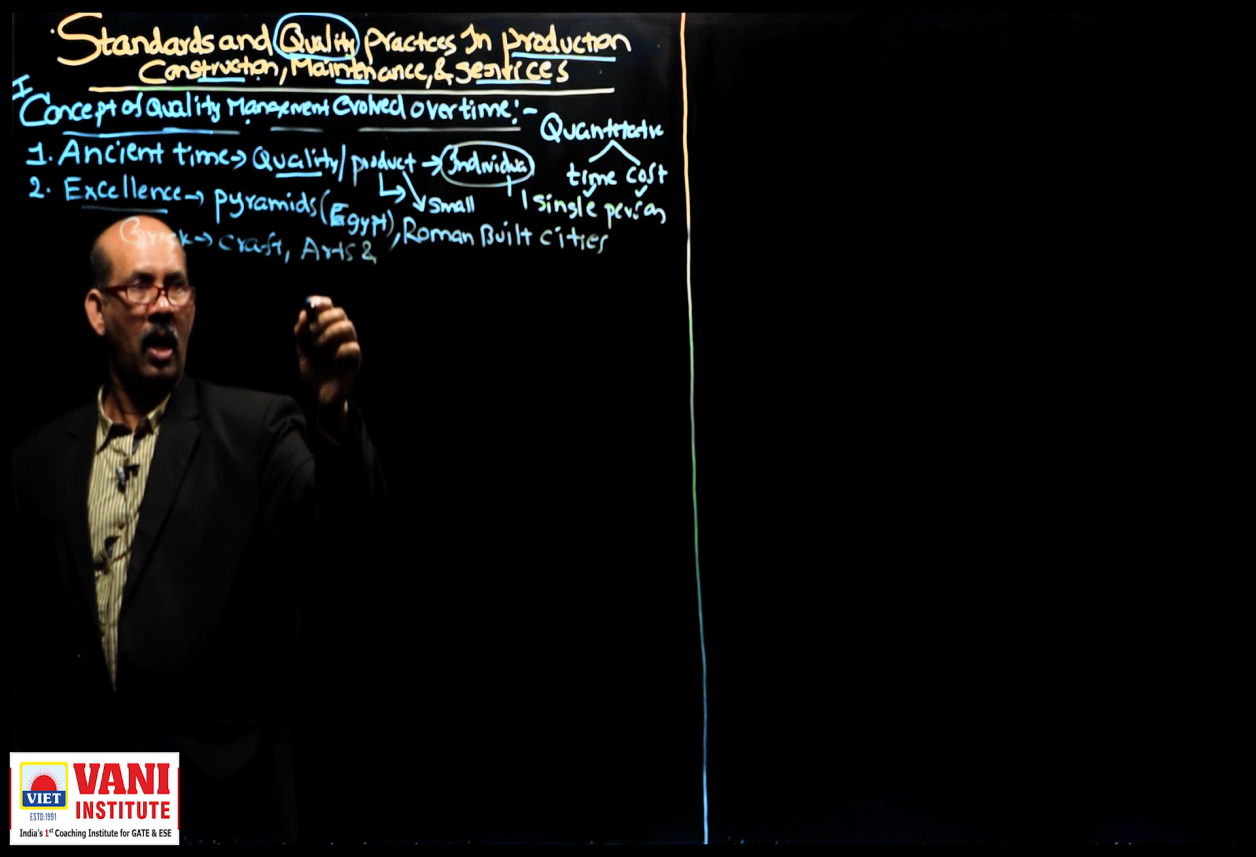 Standards and Quality practices In production
Construction, Maintenance, & services
I
Concept of Quality Management evolved over time:-
Quantitative
time cost
1. Ancient time → Quality/product → Individual
Small
1 single person
2. Excellence → pyramids (Egypt), Roman Built cities
Greek → craft, Arts &
VIET
ESTD:1991
VANI
INSTITUTE
India's 1st Coaching Institute for GATE & ESE